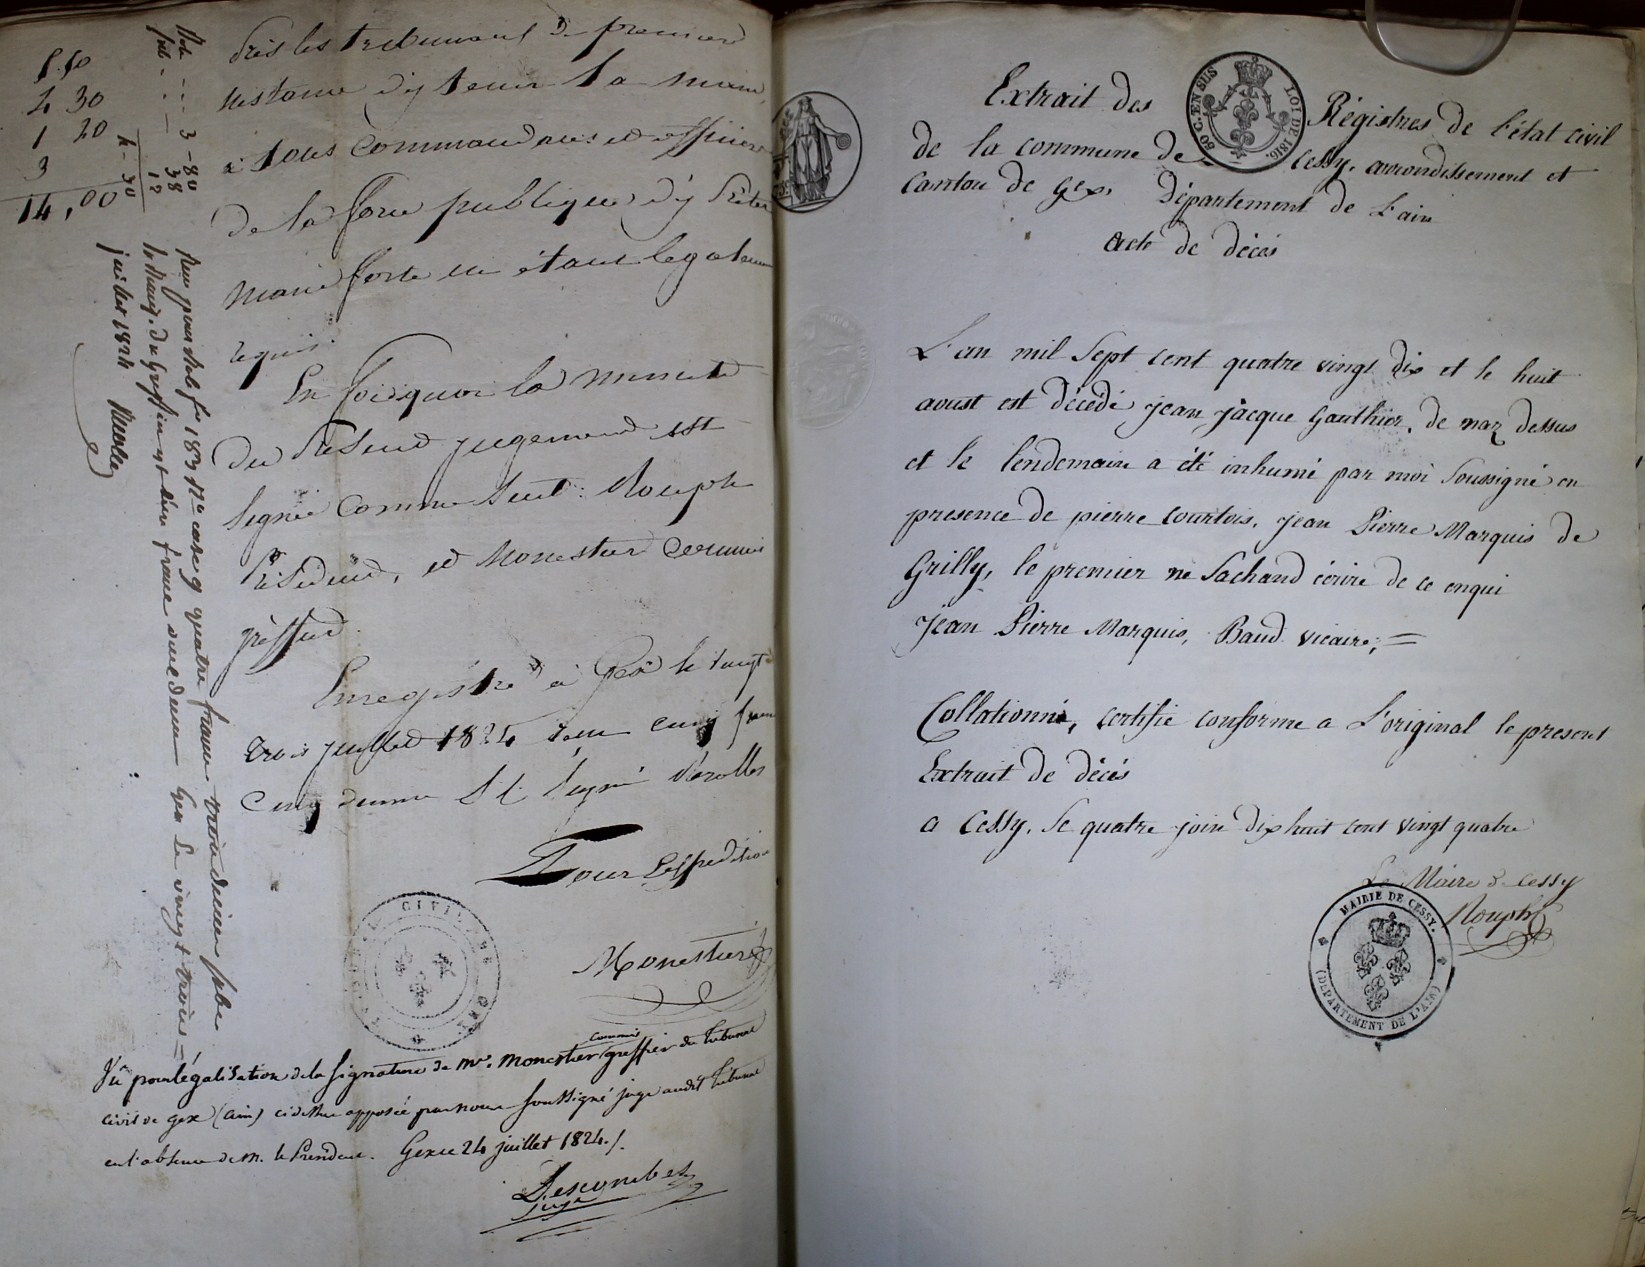 près les tribunaux de premiere
instance d'y tenir la main,
à tous commandans et officiers
de la force publique d'y prêter
main forte en étant légalement
requis.
En foi de quoi la minute
du présent jugement est
signée comme suit: Rouph
Président, et Monestier commis
greffier.
Enregistré à Gex le vingt
trois juillet 1824 reçu cinq francs
cinq decimes S. t. signé Nicollet
Pour Expedition
Monestier
TRIBUNAL CIVIL DE GEX
Vû pour légalisation de la signature de Mr. Monestier commis greffier du Tribunal
civil de Gex (ain) ci dessus apposée par nous soussigné juge audit Tribunal
en l'absence de M. le Président. Gex ce 24 juillet 1824./.
Descombes
juge
5.50
4 30
1 20
3
14,00
3 - 80
38
12
4 - 30
Reçu pour f° 183 Ro case 9 quatre francs trois decimes
le vingt trois
juillet 1824
Extrait des Régistres de l'état civil
80 C. EN SUS LOI DE 1816.
de la commune de Cessy, arrondissement et
Canton de Gex, Département de L'ain
Acte de décés
L'an mil Sept cent quatre vingt dix et le huit
aoust est décédé jean jacque Gauthier, de maz dessus
et le lendemain a été inhumé par moi Soussigné en
presence de pierre courtois, jean Pierre Marquis de
Grilly, le premier ne Sachand écrire de ce enqui
jean Pierre Marquis, Baud vicaire;=
Collationné, certifié conforme a L'original le present
Extrait de décés
a Cessy, le quatre join dix huit cent vingt quatre
Le Maire de Cessy
Rouph
MAIRIE DE CESSY.
(DÉPARTEMENT DE L'AIN)